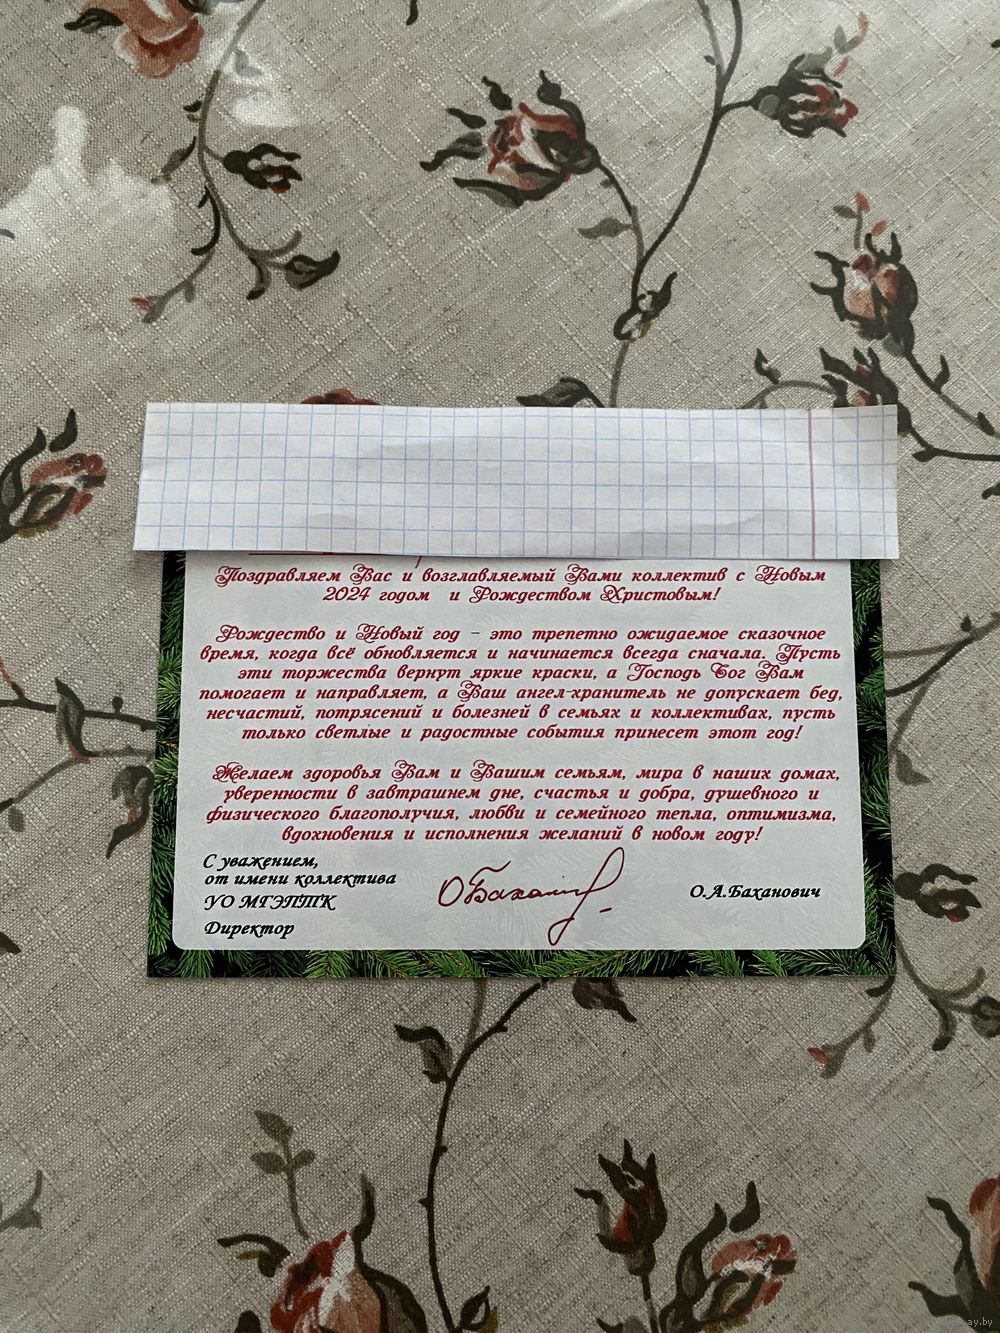 Поздравляем Вас и возглавляемый Вами коллектив с Новым
2024 годом и Рождеством Христовым!
Рождество и Новый год – это трепетно ожидаемое сказочное
время, когда всё обновляется и начинается всегда сначала. Пусть
эти торжества вернут яркие краски, а Господь Бог Вам
помогает и направляет, а Ваш ангел-хранитель не допускает бед,
несчастий, потрясений и болезней в семьях и коллективах, пусть
только светлые и радостные события принесет этот год!
Желаем здоровья Вам и Вашим семьям, мира в наших домах,
уверенности в завтрашнем дне, счастья и добра, душевного и
физического благополучия, любви и семейного тепла, оптимизма,
вдохновения и исполнения желаний в новом году!
С уважением,
от имени коллектива
УО МГЭПТК
Директор
О.А.Баханович
ay.by